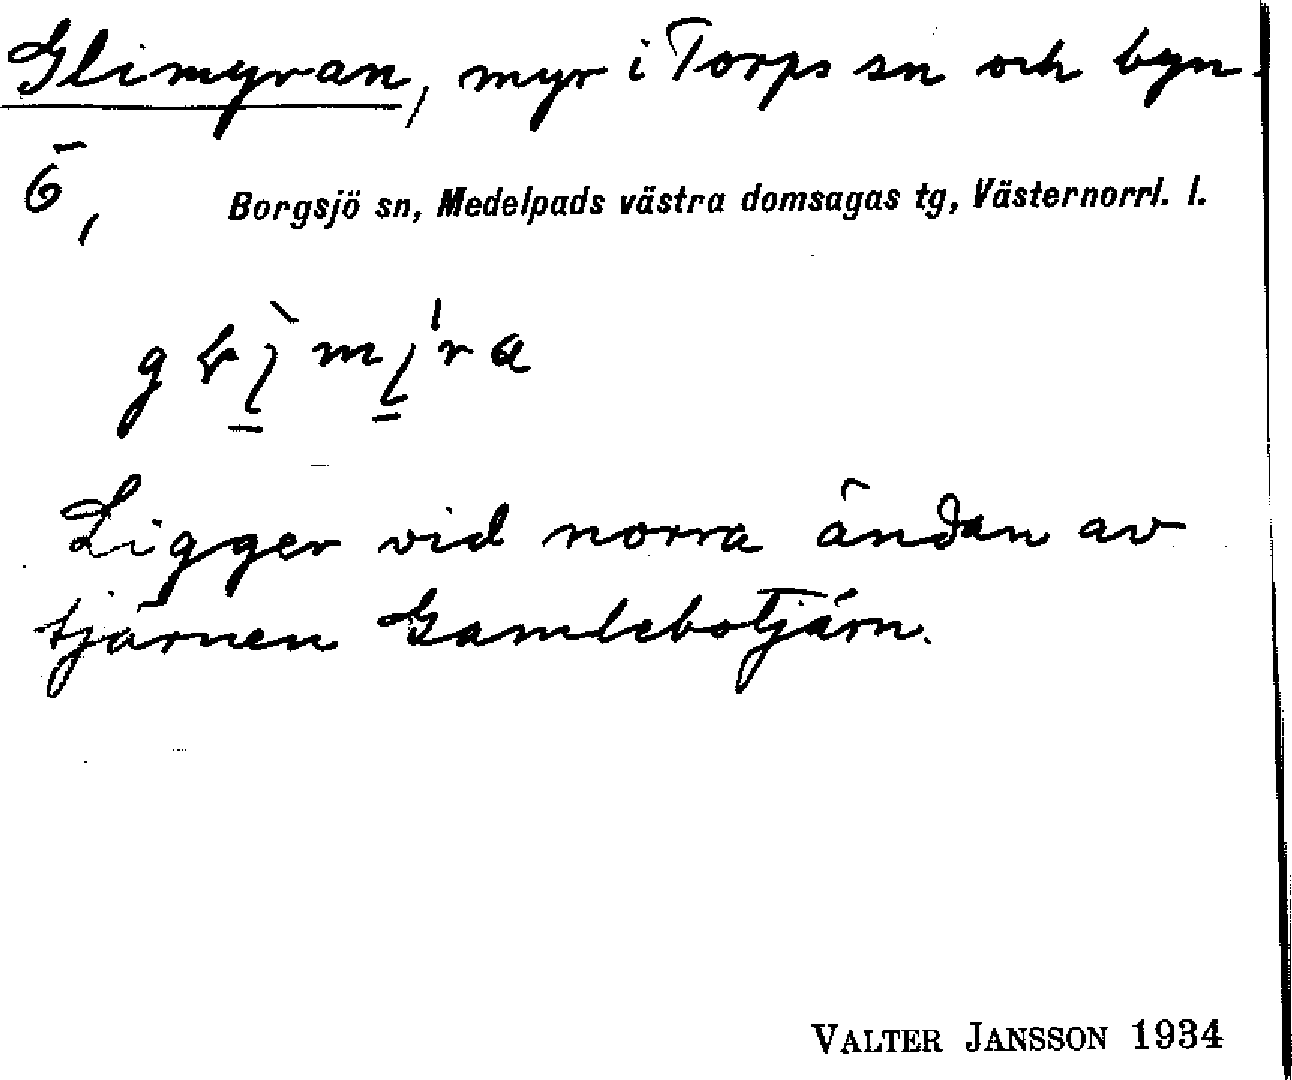 Glimyran, myr i Torps sn och byn
Ö,
Borgsjö sn, Medelpads västra domsagas tg, Västernorrl. l.
Ligger vid norra ändan av
tjärnen Gamlebotjärn.
VALTER JANSSON 1934